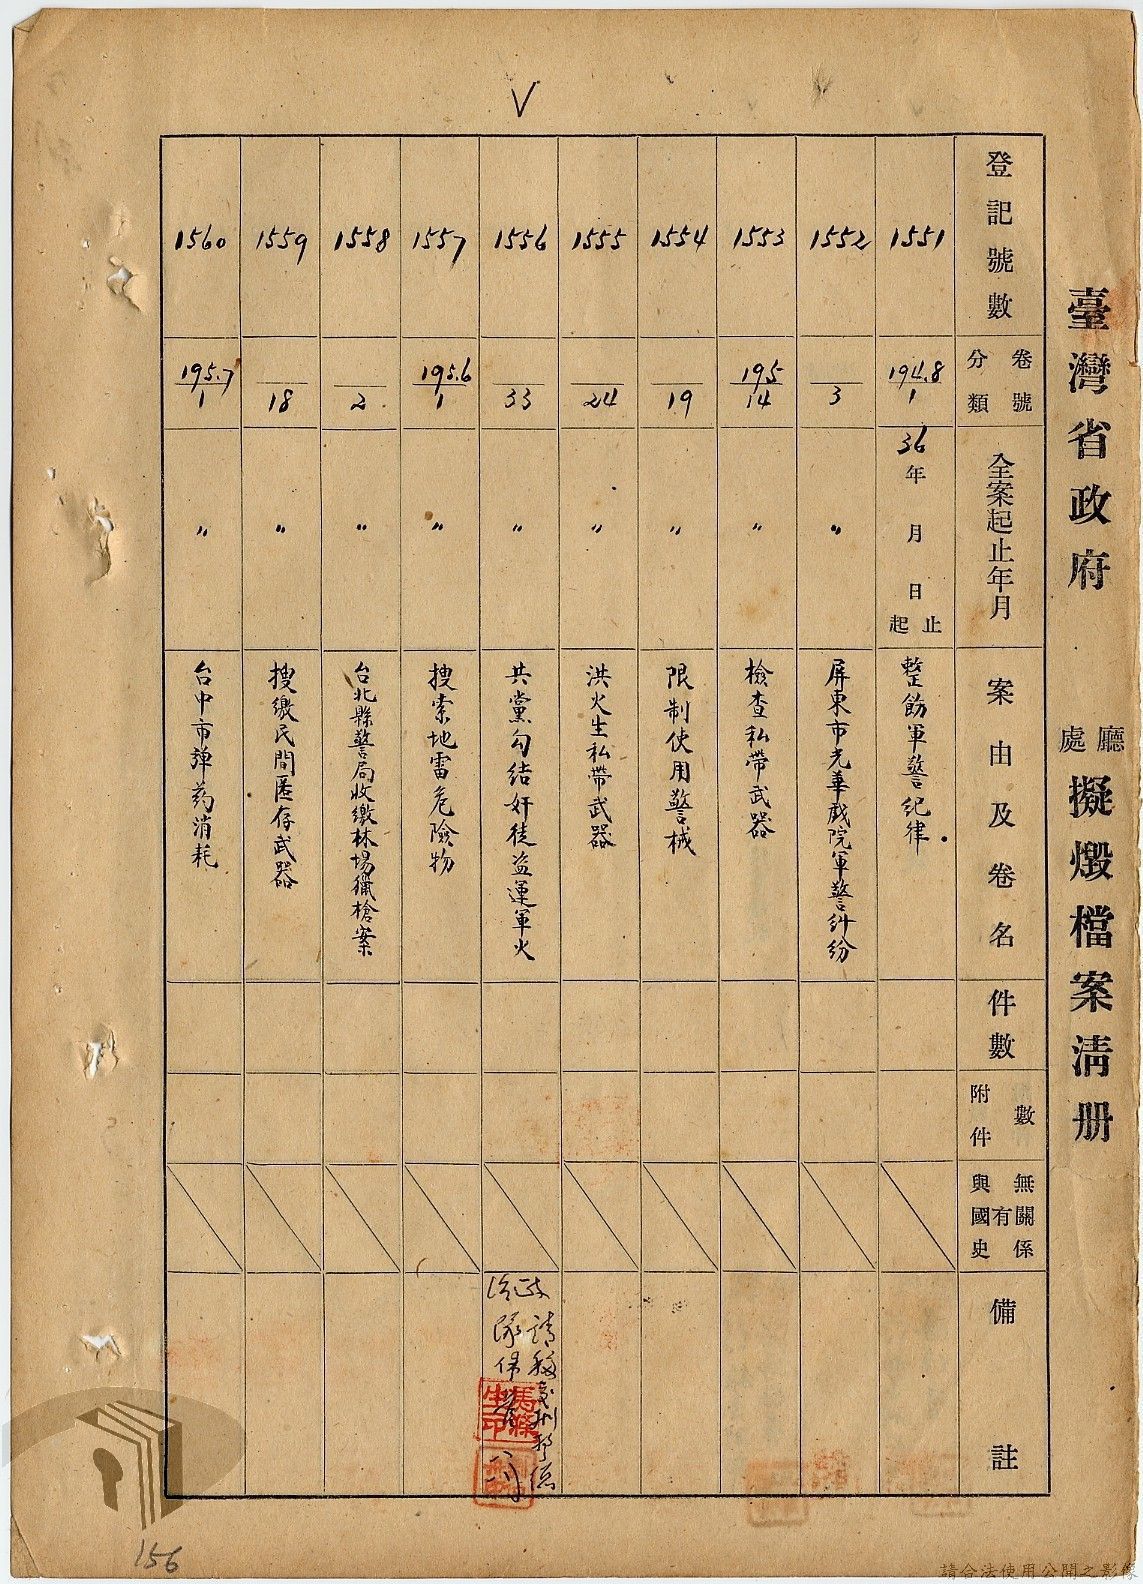 V
臺灣省政府 廳處 擬燬檔案清册
登記號數
卷號 分類
全案起止年月
案由及卷名
件數
附件數
與國史有無關係
備註
1551
194.8/1
36年 月 日 起止
整飭軍警紀律.
1552
/3
〃
屏東市光華戲院軍警糾紛
1553
195/14
〃
檢查私帶武器
1554
/19
〃
限制使用警械
1555
/24
〃
洪火生私帶武器
1556
/33
〃
共黨勾結奸徒盜運軍火
1557
195.6/1
〃
搜索地雷危險物
1558
/2
〃
台北縣警局收繳林場獵槍案
1559
/18
〃
搜繳民間匿存武器
1560
195.7/1
〃
台中市彈葯消耗
156
請合法使用公開之影像